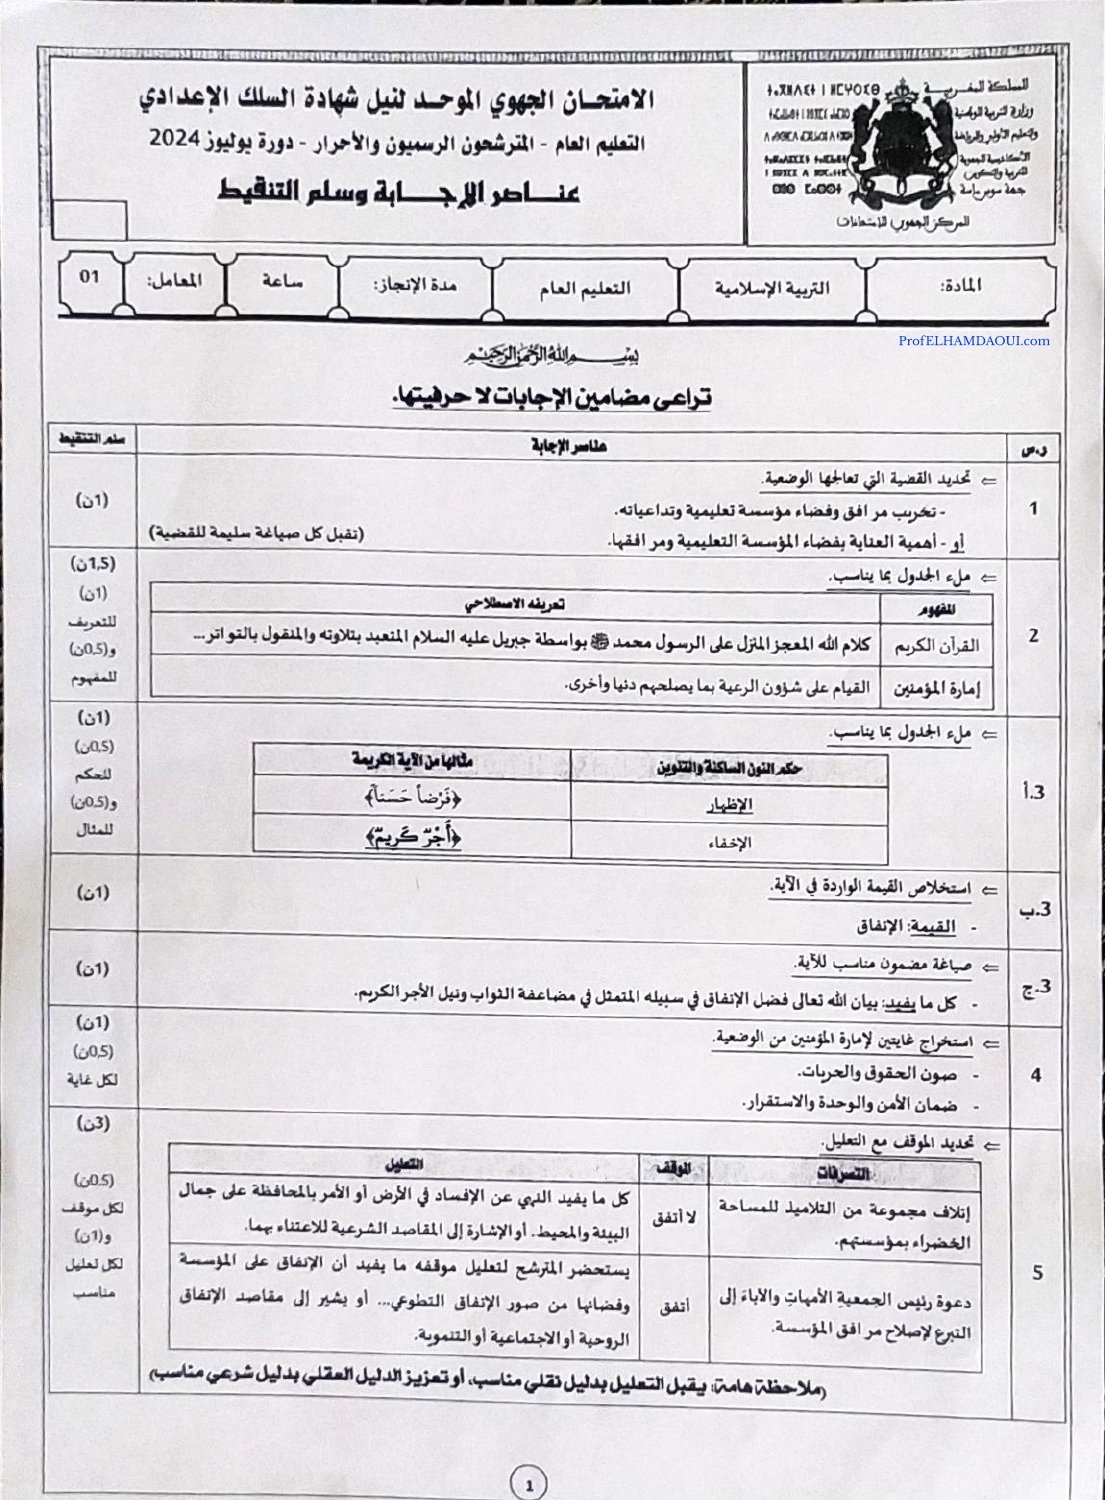 المملكة المغربية
وزارة التربية الوطنية
والتعليم الأولي والرياضة
الأكاديمية الجهوية
للتربية والتكوين
جهة سوس ماسة
المركز الجهوي للامتحانات
الامتحان الجهوي الموحد لنيل شهادة السلك الإعدادي
التعليم العام - المترشحون الرسميون والأحرار - دورة يوليوز 2024
عناصر الإجابة وسلم التنقيط
المادة: التربية الإسلامية التعليم العام مدة الإنجاز: ساعة المعامل: 01
ProfELHAMDAOUI.com
بسم الله الرحمن الرحيم
تراعى مضامين الإجابات لا حرفيتها.
ر.س عناصر الإجابة سلم التنقيط
1
⇐ تحديد القضية التي تعالجها الوضعية.
- تخريب مرافق وفضاء مؤسسة تعليمية وتداعياته.
أو - أهمية العناية بفضاء المؤسسة التعليمية ومرافقها. (تقبل كل صياغة سليمة للقضية)
(1ن)
2
⇐ ملء الجدول بما يناسب.
المفهوم تعريفه الاصطلاحي
القرآن الكريم كلام الله المعجز المنزل على الرسول محمد ﷺ بواسطة جبريل عليه السلام المتعبد بتلاوته والمنقول بالتواتر...
إمارة المؤمنين القيام على شؤون الرعية بما يصلحهم دنيا وأخرى.
(1,5ن)
(1ن)
للتعريف
و(0,5ن)
للمفهوم
3.أ
⇐ ملء الجدول بما يناسب.
حكم النون الساكنة والتنوين مثالها من الآية الكريمة
الإظهار ﴿قَرْضاً حَسَناً﴾
الإخفاء ﴿أَجْرٌ كَرِيمٌ﴾
(1ن)
(0,5ن)
للحكم
و(0,5ن)
للمثال
3.ب
⇐ استخلاص القيمة الواردة في الآية.
- القيمة: الإنفاق
(1ن)
3.ج
⇐ صياغة مضمون مناسب للآية.
- كل ما يفيد: بيان الله تعالى فضل الإنفاق في سبيله المتمثل في مضاعفة الثواب ونيل الأجر الكريم.
(1ن)
4
⇐ استخراج غايتين لإمارة المؤمنين من الوضعية.
- صون الحقوق والحريات.
- ضمان الأمن والوحدة والاستقرار.
(1ن)
(0,5ن)
لكل غاية
5
⇐ تحديد الموقف مع التعليل.
التصرفات الموقف التعليل
إتلاف مجموعة من التلاميذ للمساحة
الخضراء بمؤسستهم.
لا أتفق
كل ما يفيد النهي عن الإفساد في الأرض أو الأمر بالمحافظة على جمال
البيئة والمحيط. أو الإشارة إلى المقاصد الشرعية للاعتناء بهما.
دعوة رئيس الجمعية الأمهات والآباء إلى
التبرع لإصلاح مرافق المؤسسة.
أتفق
يستحضر المترشح لتعليل موقفه ما يفيد أن الإنفاق على المؤسسة
وفضائها من صور الإنفاق التطوعي... أو يشير إلى مقاصد الإنفاق
الروحية أو الاجتماعية أو التنموية.
(ملاحظة هامة: يقبل التعليل بدليل نقلي مناسب، أو تعزيز الدليل العقلي بدليل شرعي مناسب)
(3ن)
(0,5ن)
لكل موقف
و(1ن)
لكل تعليل
مناسب
1